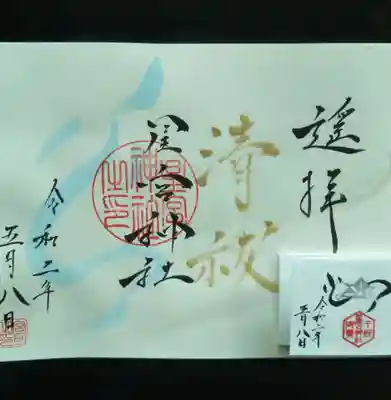 遙拝
清祓
星宮神社
令和二年
五月八日
令和二年
五月八日